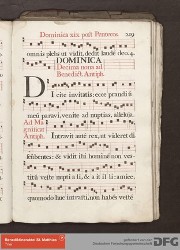 Dominica xix. post Pentecos. 229
omnis plebs ut vidit, dedit laudé deo. 4.
DOMINICA
Decima nona ad
Benedict. Antiph.
Dicite invitatis: ecce prandiū
meū paravi, venite ad nuptias, alleluia.
Ad Ma
gnificat
Antiph.
Intravit autē rex, ut videret di
scūbentes: & vidit ibi hominē non ves
titū veste nupti ali, & a it il li: amice
quomodo huc intrasti, non habēs vestē
DFG